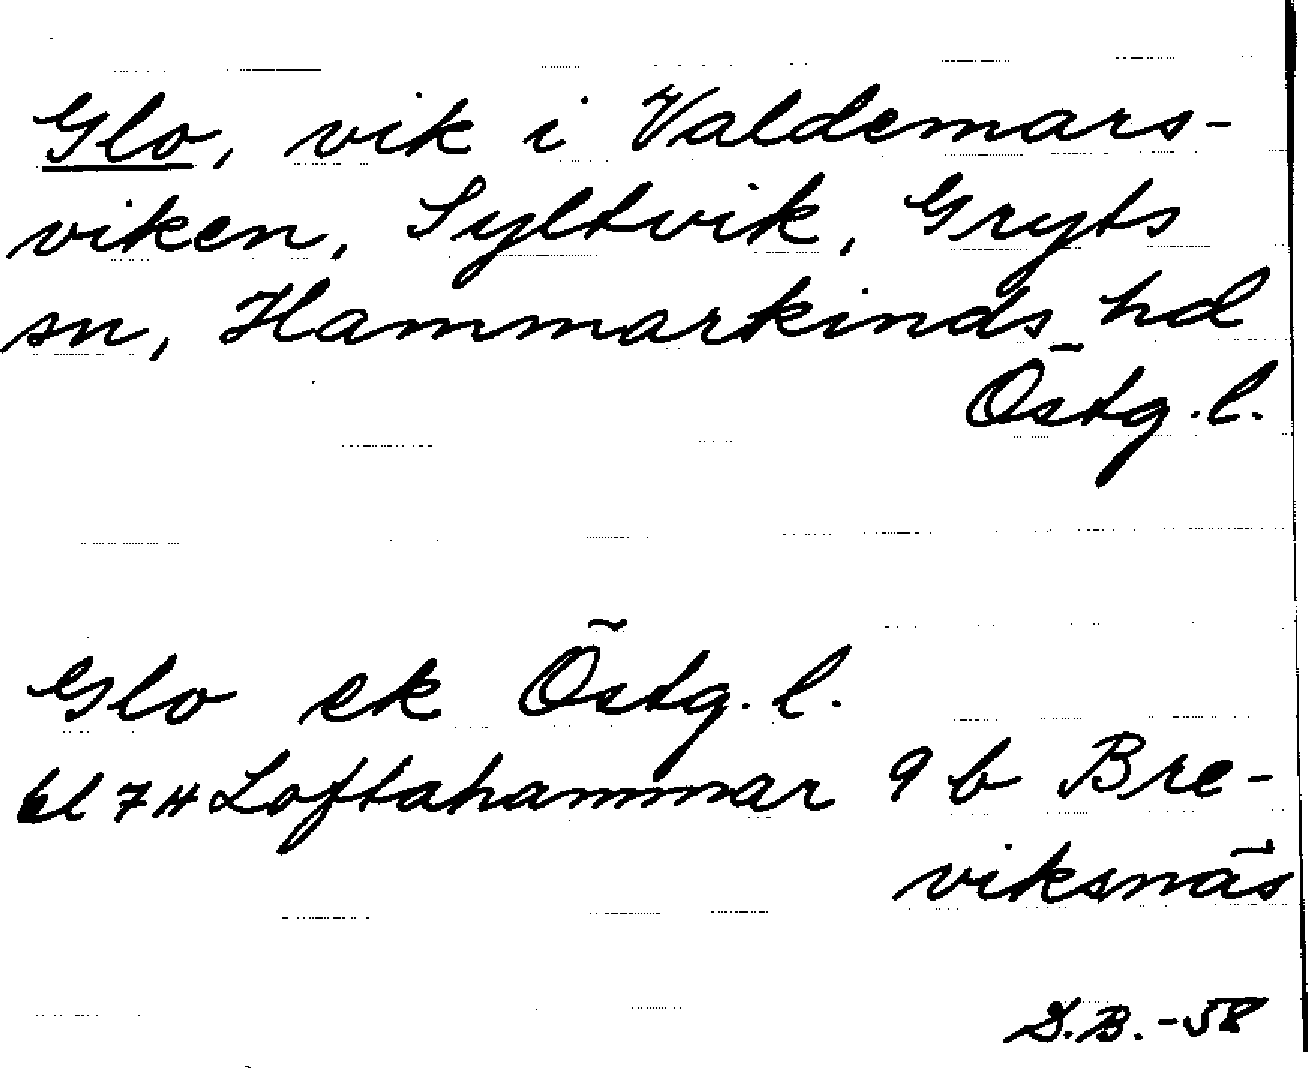 Glo, vik i Valdemars-
viken, Syltvik, Gryts
sn, Hammarkinds hd
Östg. l.
Glo ek Östg. l.
bl 7H Loftahammar 9 b Bre-
viksnäs
D.B. -58